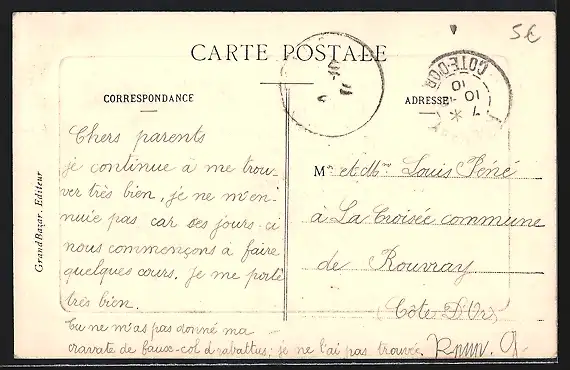 5€
CARTE POSTALE
CÔTE-D'OR
7
10
10
CORRESPONDANCE
ADRESSE
Chers parents
je continue à me trou-
ver très bien, je ne m'en-
nuie pas car ses jours-ci
nous commençons à faire
quelques cours. Je me porte
très bien.
Tu ne m'as pas donné ma
cravate de faux-col d rabattus; je ne l'ai pas trouvée.
Mr et Mme Louis
à La Croisée commune
de Rouvray
(Côte D'Or)
Grand Bazar, Editeur